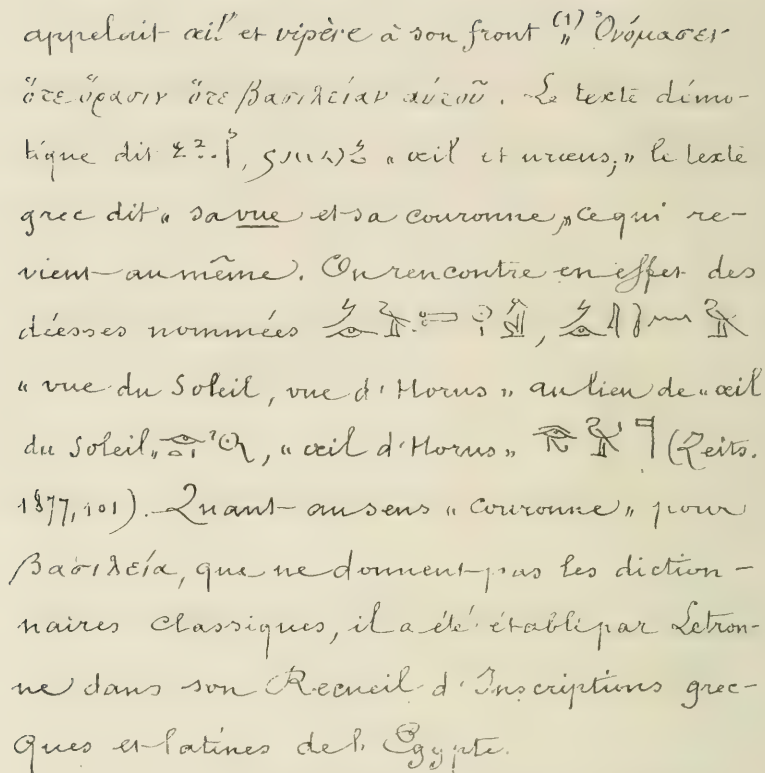 appelait œil et vipère à son front (1) " Ὀνόμασεν
ὅτε ὅρασιν ὅτε βασιλείαν αὐτοῦ. Le texte démo-
tique dit « œil et uræus, » le texte
grec dit « sa vue et sa couronne, » ce qui re-
vient au même. On rencontre en effet des
déesses nommées
« vue du Soleil, vue d'Horus » au lieu de « œil
du Soleil » , « œil d'Horus » (Zeits.
1877, 101). Quant au sens « couronne » pour
βασιλεία, que ne donnent pas les diction-
naires classiques, il a été établi par Letron-
ne dans son Recueil d'Inscriptions grec-
ques et latines de l'Egypte.